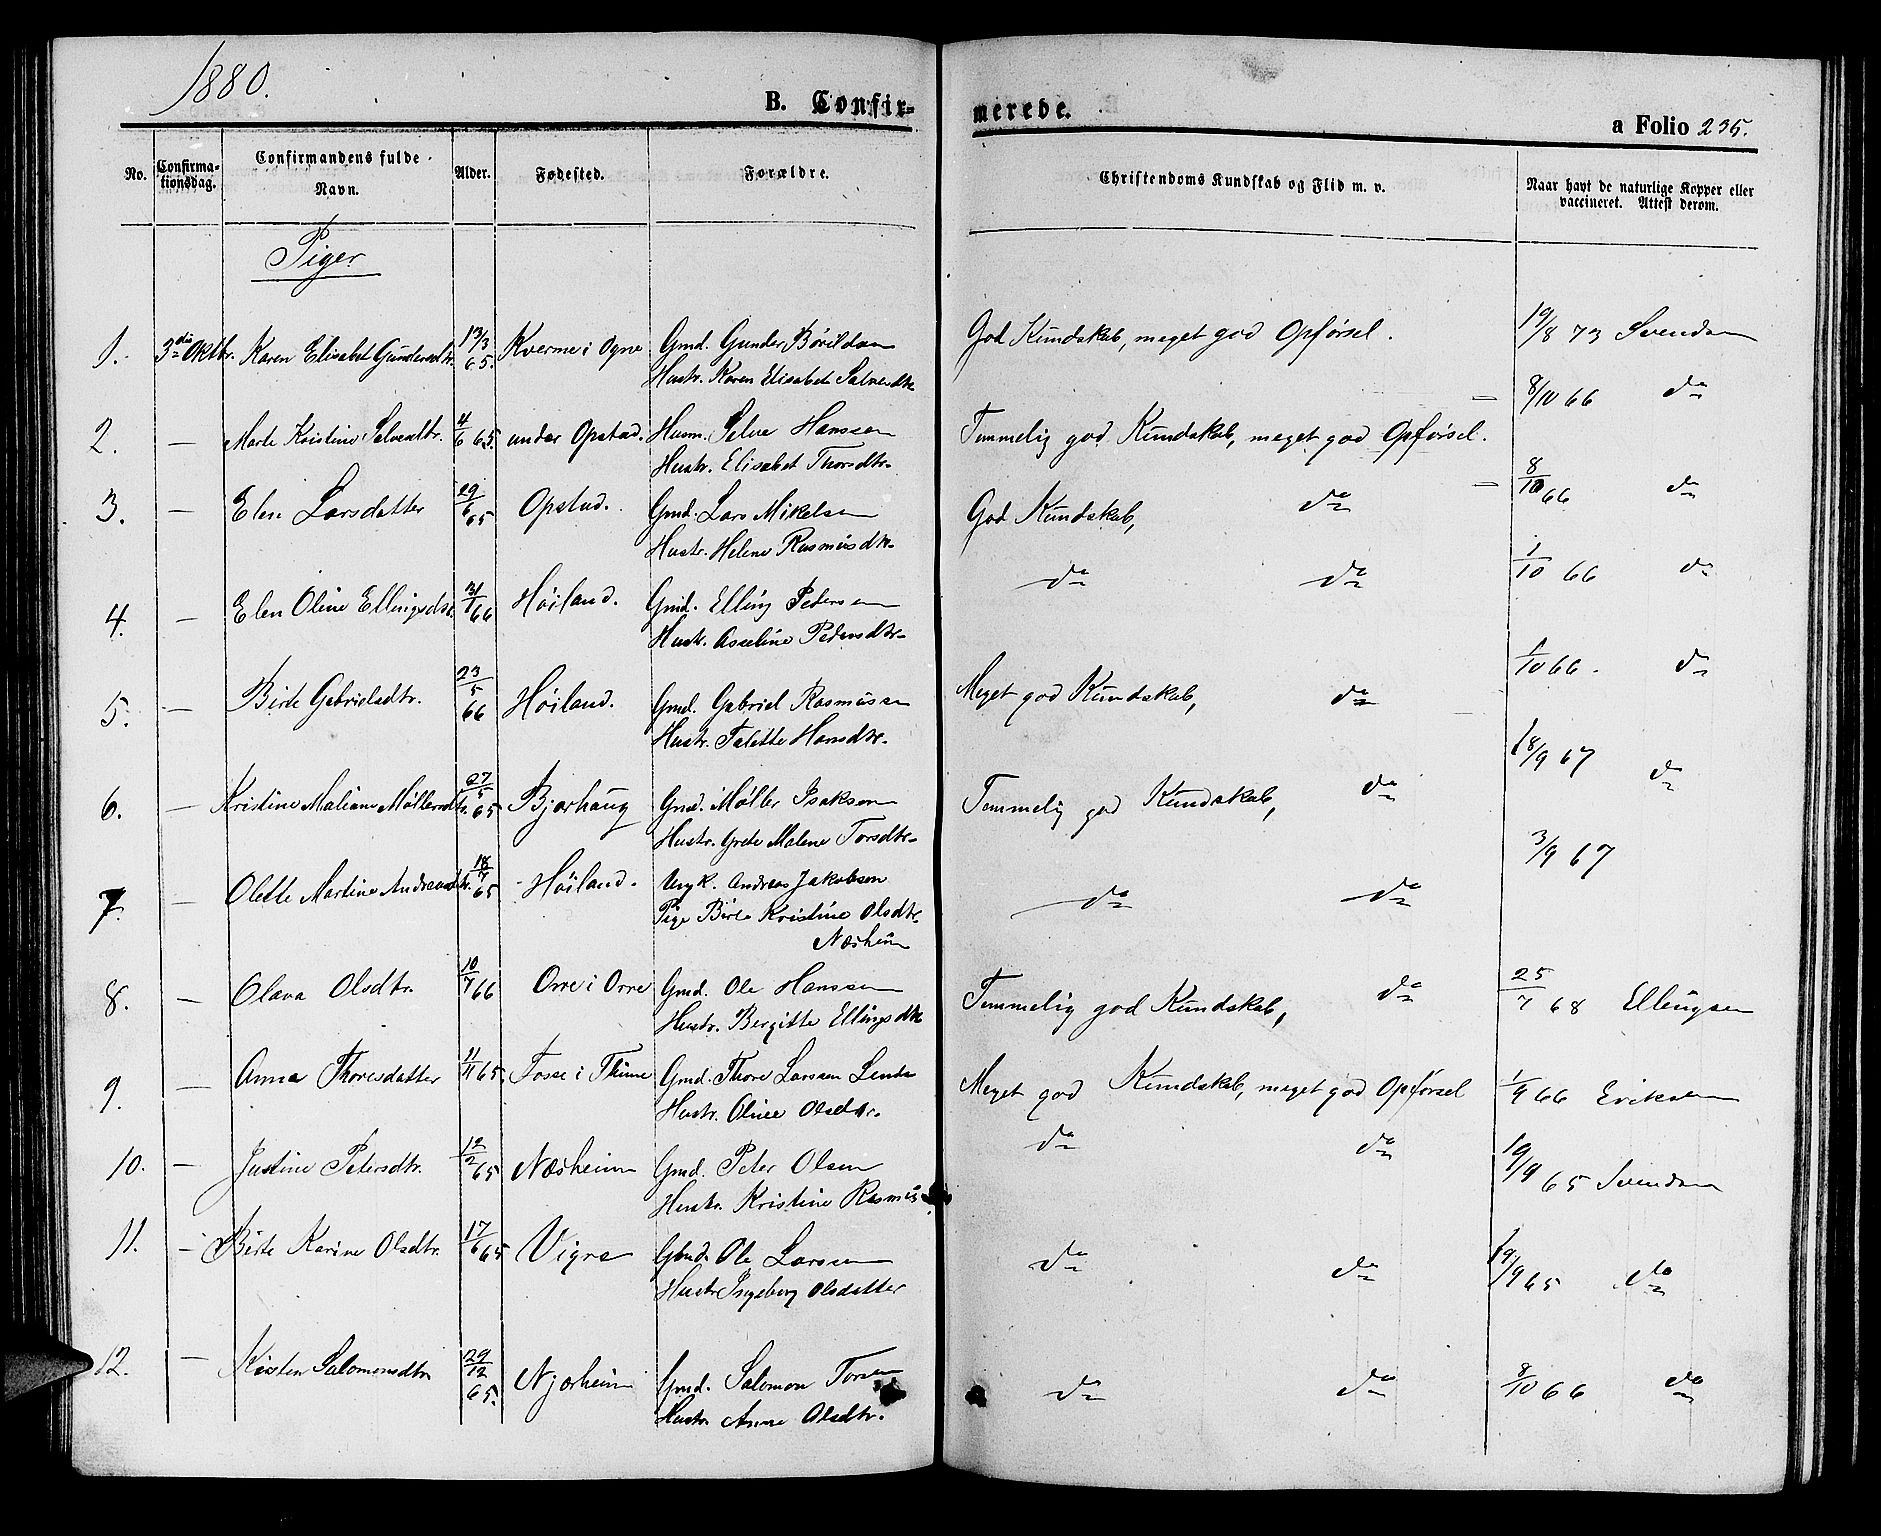 1880.
B. Confirmerede.
a Folio 235.
No. Confirmationsdag. Confirmandens fulde Navn. Alder. Fødested. Forældre. Christendoms Kundskab og Flid m. v. Naar havt de naturlige Kopper eller vaccineret. Attest derom.
Piger
1. 3die Oktbr. Karen Elisabet Gundersdtr. 13/3 65. Kverme i Ogne Gmd. Gunder Bårildsen God Kundskab, meget god Opførsel. 19/8 73 Svendsen
Hustr. Karen Elisabet Salvesdtr.
2. — Marte Kristine Salvesdtr. 4/6 65. under Opstad. Husm. Salve Hanssen Temmelig god Kundskab, meget god Opførsel. — 8/10 66 do
Hustr. Elisabet Thorsdtr.
3. — Elen Larsdatter 29/6 65 Opstad. Gmd. Lars Mikelsen God Kundskab, do — 8/10 66 do
Hustr. Helene Rasmusdtr.
4. — Elen Oline Ellingsdtr. 31/1 66 Høiland. Gmd. Elling Petersen do do 1/10 66 do
Hustr. Asseline Pedersdtr.
5. — Birte Gabrielsdtr. 23/5 66 Høiland. Gmd. Gabriel Rasmussen Meget god Kundskab, do 1/10 66. do
Hustr. Talette Hansdtr.
6. — Kristine Maliane Møllersdtr. 27/5 65 Bjorhaug Gmd. Møller Isaksen Temmelig god Kundskab, do 18/9 67 do
Hustr. Grete Malene Torsdtr.
7. — Olette Martine Andreasdtr. 18/7 65 Høiland. Ungk. Andreas Jakobsen do do 3/9 67
Pige Birte Kristine Olsdtr.
Næsheim
8. — Olava Olsdtr. 10/7 66 Orre i Orre Gmd. Ole Hanssen Temmelig god Kundskab, do 25/7 68 Ellingsen
Hustr. Bergitte Ellingsdtr.
9. — Anna Thoresdatter 11/11 65. Fosse i Thime Gmd. Thore Larssen Lende Meget god Kundskab, meget god Opførsel 1/9 66 Eriksen
Hustr. Oline Olsdtr.
10. — Justine Petersdtr. 12/2 65 Næsheim Gmd. Peter Olsen do do 19/9 65 Svendsen
Hustr. Kristine Rasmus
11. — Birte Karine Olsdtr. 17/6 65 Vigre Gmd. Ole Larssen do do 19/9 65 do
Hustr. Ingeborg Olsdatter
12. — Kisten Salomonsdtr. 29/12 65. Njærheim Gmd. Salomon Torsen do do 8/10 66 do
Hustr. Anne Olsdtr.